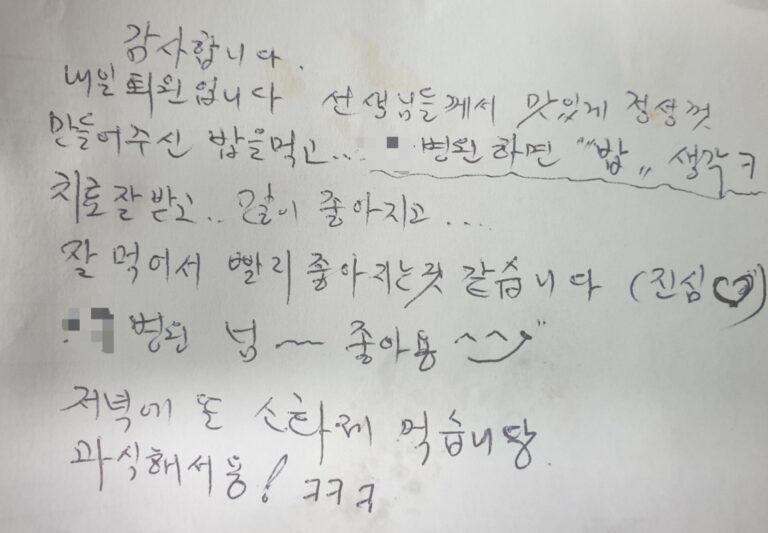 감사합니다.
내일 퇴원입니다 선생님들께서 맛있게 정성껏
만들어주신 밥을먹고... 병원 하면 "밥" 생각ㅋ
치료 잘 받고.. 몸이 좋아지고....
잘 먹어서 빨리 좋아지는것 같습니다 (진심♡)
병원 넘~ 좋아용 ^^
저녁에 또 소화제 먹습니당
과식해서용! ㅋㅋㅋ